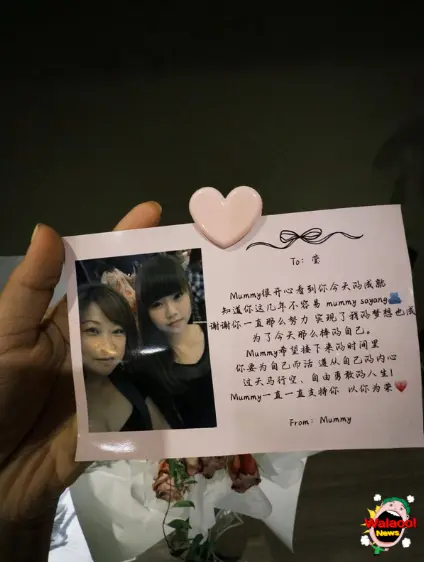 To: 莹
Mummy很开心看到你今天的成就
知道你这几年不容易 mummy sayang🫂
谢谢你一直那么努力 实现了我的梦想也成
为了今天那么棒的自己。
Mummy希望接下来的时间里
你要为自己而活 遵从自己的内心
过天马行空、自由勇敢的人生!
Mummy一直一直支持你 以你为荣💗
From: Mummy
Walaool
News